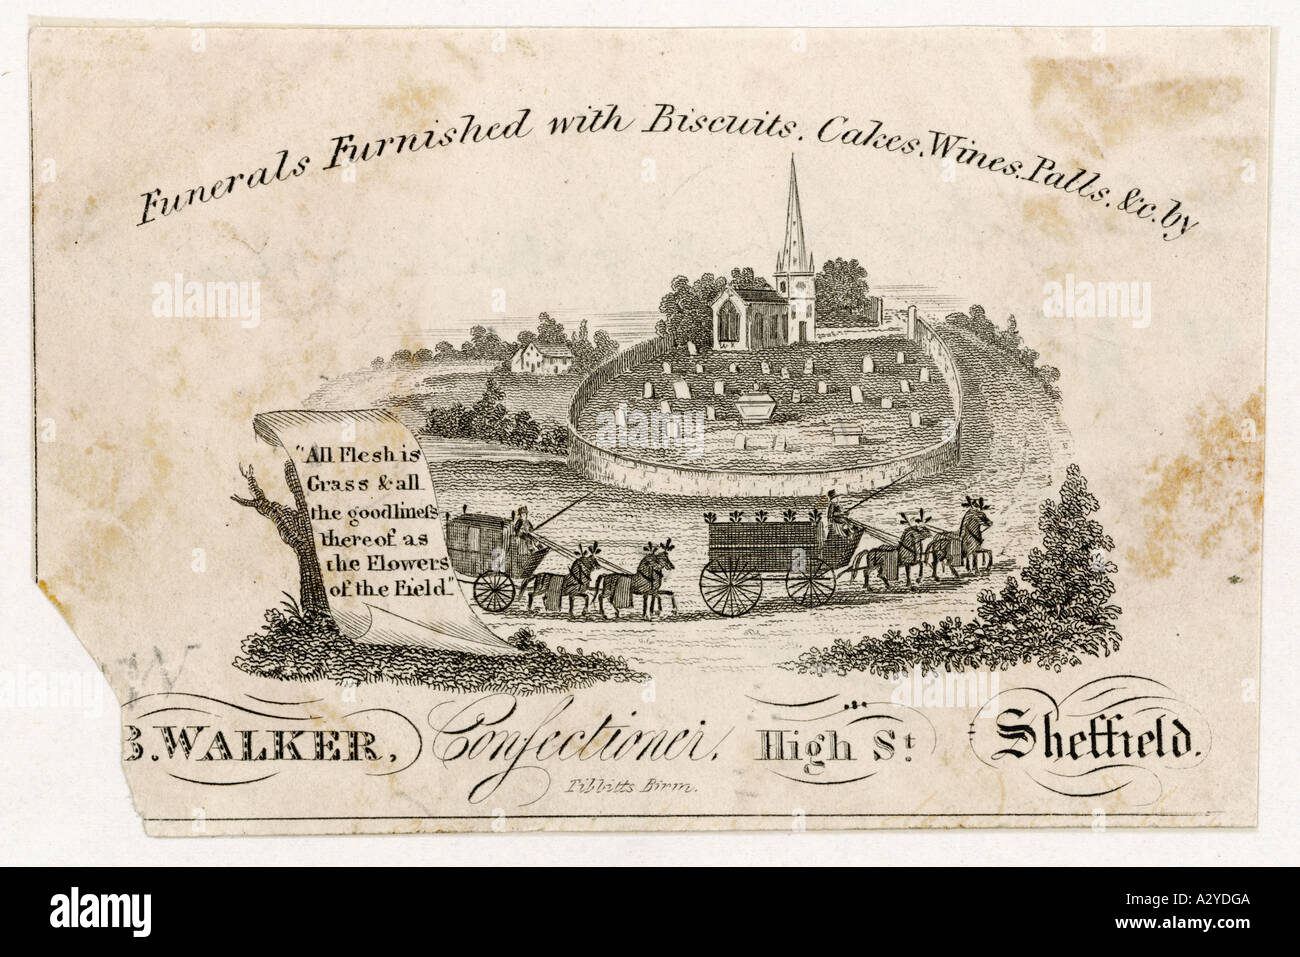 Funerals Furnished with Biscuits. Cakes. Wines. Palls. &c. by
"All Flesh is
Grass & all
the goodlineſs
thereof as
the Flowers
of the Field."
B. WALKER, Confectioner, High St. Sheffield.
Tibbitts Birm.
alamy
alamy
alamy
alamy
alamy
alamy
Image ID: A2YDGA
www.alamy.com